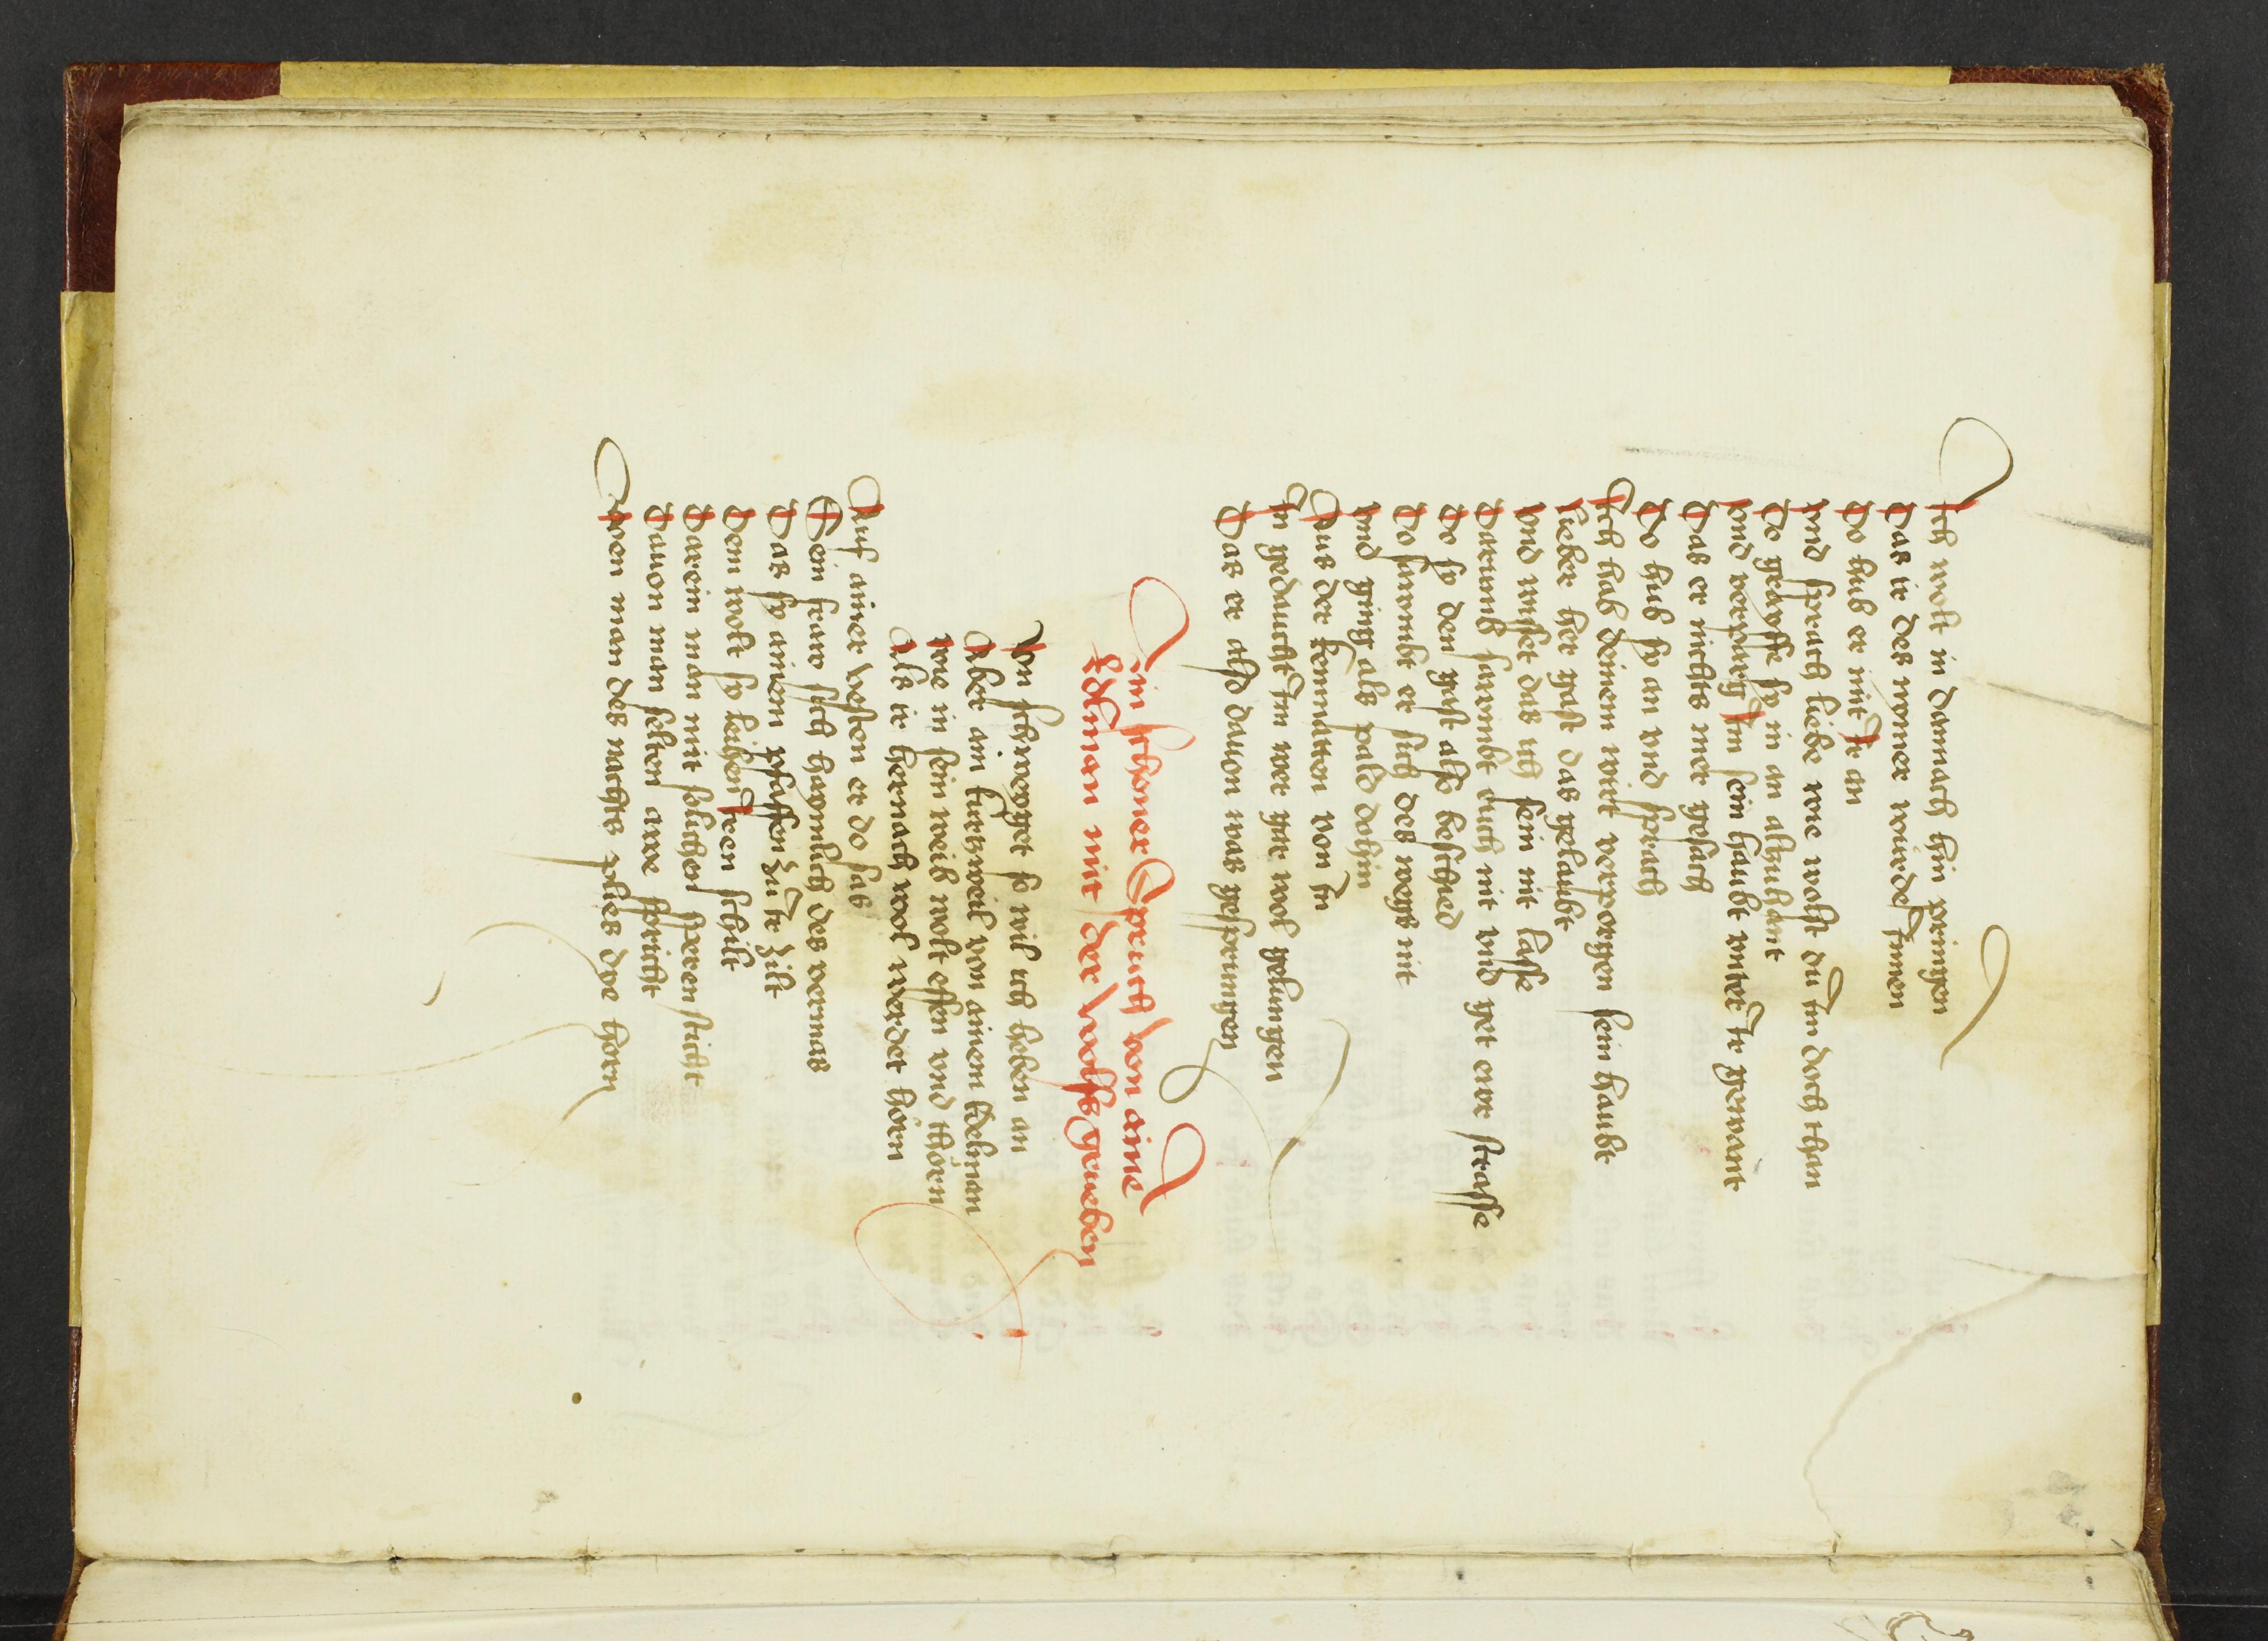 Ich wolt in darnach hin pringen
Das ir des womer wurde Innen
Do hub er mit Ir an
vnd sprach liebe wie wolst du Im doch than
Do graiffe sy in an altzuhant
vnd verparg Im sein haubt vnter Ir gewant
Das er nichts mer gesach
Do hub sy an vnd sprach
Ich hab deinem wirt verporgen sein haubt
Lieber her gast das gelaubt
vnd wisset das ich sein nit lasse
Darumb sawmbt euch nit vnd get ewr strasse
Do sy den gast also beschied
Do sawmbt er sich des wegs nit
vnd ging als pald dohin
Aus der kemnatten von In
In gedaucht Im wer gar wol gelungen
Das er also dauon was gesprungen
Ein schoner Spruch von aine
Edlman mit der wolffs grueben
Un schweyget so wil ich heben an
Aber ain kurtzweil von ainem Edelman
wie in sein weib wolt essen vnd thörn
Als ir hernach wol werdet hörn
Auf ainer vesten er do sas
Sein fraw sich haymlich des vermas
Das sy ainem pfaffen zu Ir zilt
Dem wolt sy leihen Iren schilt
Darein man mit sölichen speren sticht
Dauon man selten awe spricht
Wen man des nachts plies dye horn